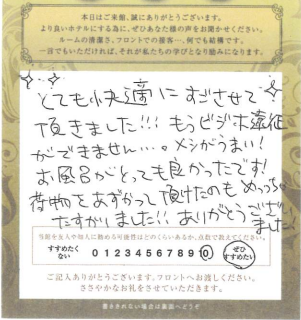 本日はご来館、誠にありがとうございます。
より良いホテルにする為に、ぜひあなた様の声をお聞かせください。
ルームの清潔さ、フロントでの接客…何でも結構です。
一言でもいただければ、それが私たちの学びとなり励みになります。
とても快適にすごさせて
頂きました!!! もうビジホ遠征
ができません…。メシがうまい!
お風呂がとっても良かったです!
荷物をあずかって頂けたのもめっちゃ
たすかりました!! ありがとうござい
ました!
当館を友人や知人に勧める可能性はどのくらいあるか、点数で教えてください。
すすめたく
ない
0 1 2 3 4 5 6 7 8 9 10
ぜひ
すすめたい
ご記入ありがとうございます。フロントへお渡しください。
ささやかなお礼をさせていただきます。
書ききれない場合は裏面へどうぞ